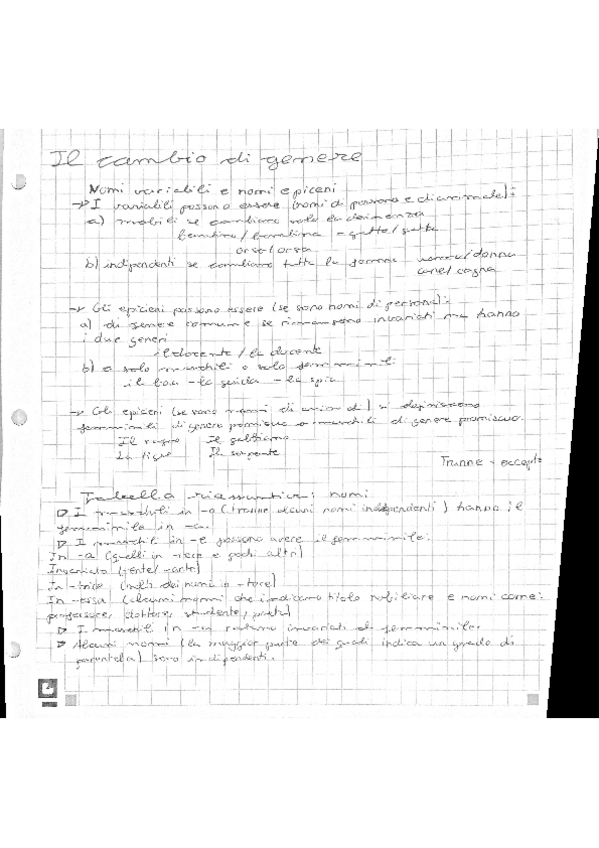 Il cambio di genere
Nomi variabili e nomi epiceni
→ I variabili possono essere (nomi di persona e di animale):
a) mobili se cambiano solo la desinenza
bambino/bambina - gatto/gatta
orso/orsa
b) indipendenti se cambiano tutta la forma uomo/donna
cane/cagna
→ Gli epiceni possono essere (se sono nomi di persona):
a) di genere comune se rimangono invariati ma hanno
i due generi
il docente / la docente
b) o solo maschili o solo femminili
il boa - la guida - la spia
→ Gli epiceni (se sono nomi di animali) si definiscono
femminili di genere promiscuo o maschili di genere promiscuo.
Il ragno Il gabbiano
La tigre Il serpente
Tranne → except
Tabella riassuntiva: nomi
▷ I maschili in -o (tranne alcuni nomi indipendenti) hanno il
femminile in -a.
▷ I maschili in -e possono avere il femminile:
In -a (quelli in -iere e pochi altri)
Invariato (-ente/-ante)
In -trice (molti dei nomi in -tore)
In -essa (alcuni nomi che indicano titolo nobiliare e nomi come:
professore, dottore, studente, poeta)
▷ I maschili in -a restano invariati al femminile.
▷ Alcuni nomi (la maggior parte dei quali indica un grado di
parentela) sono indipendenti.